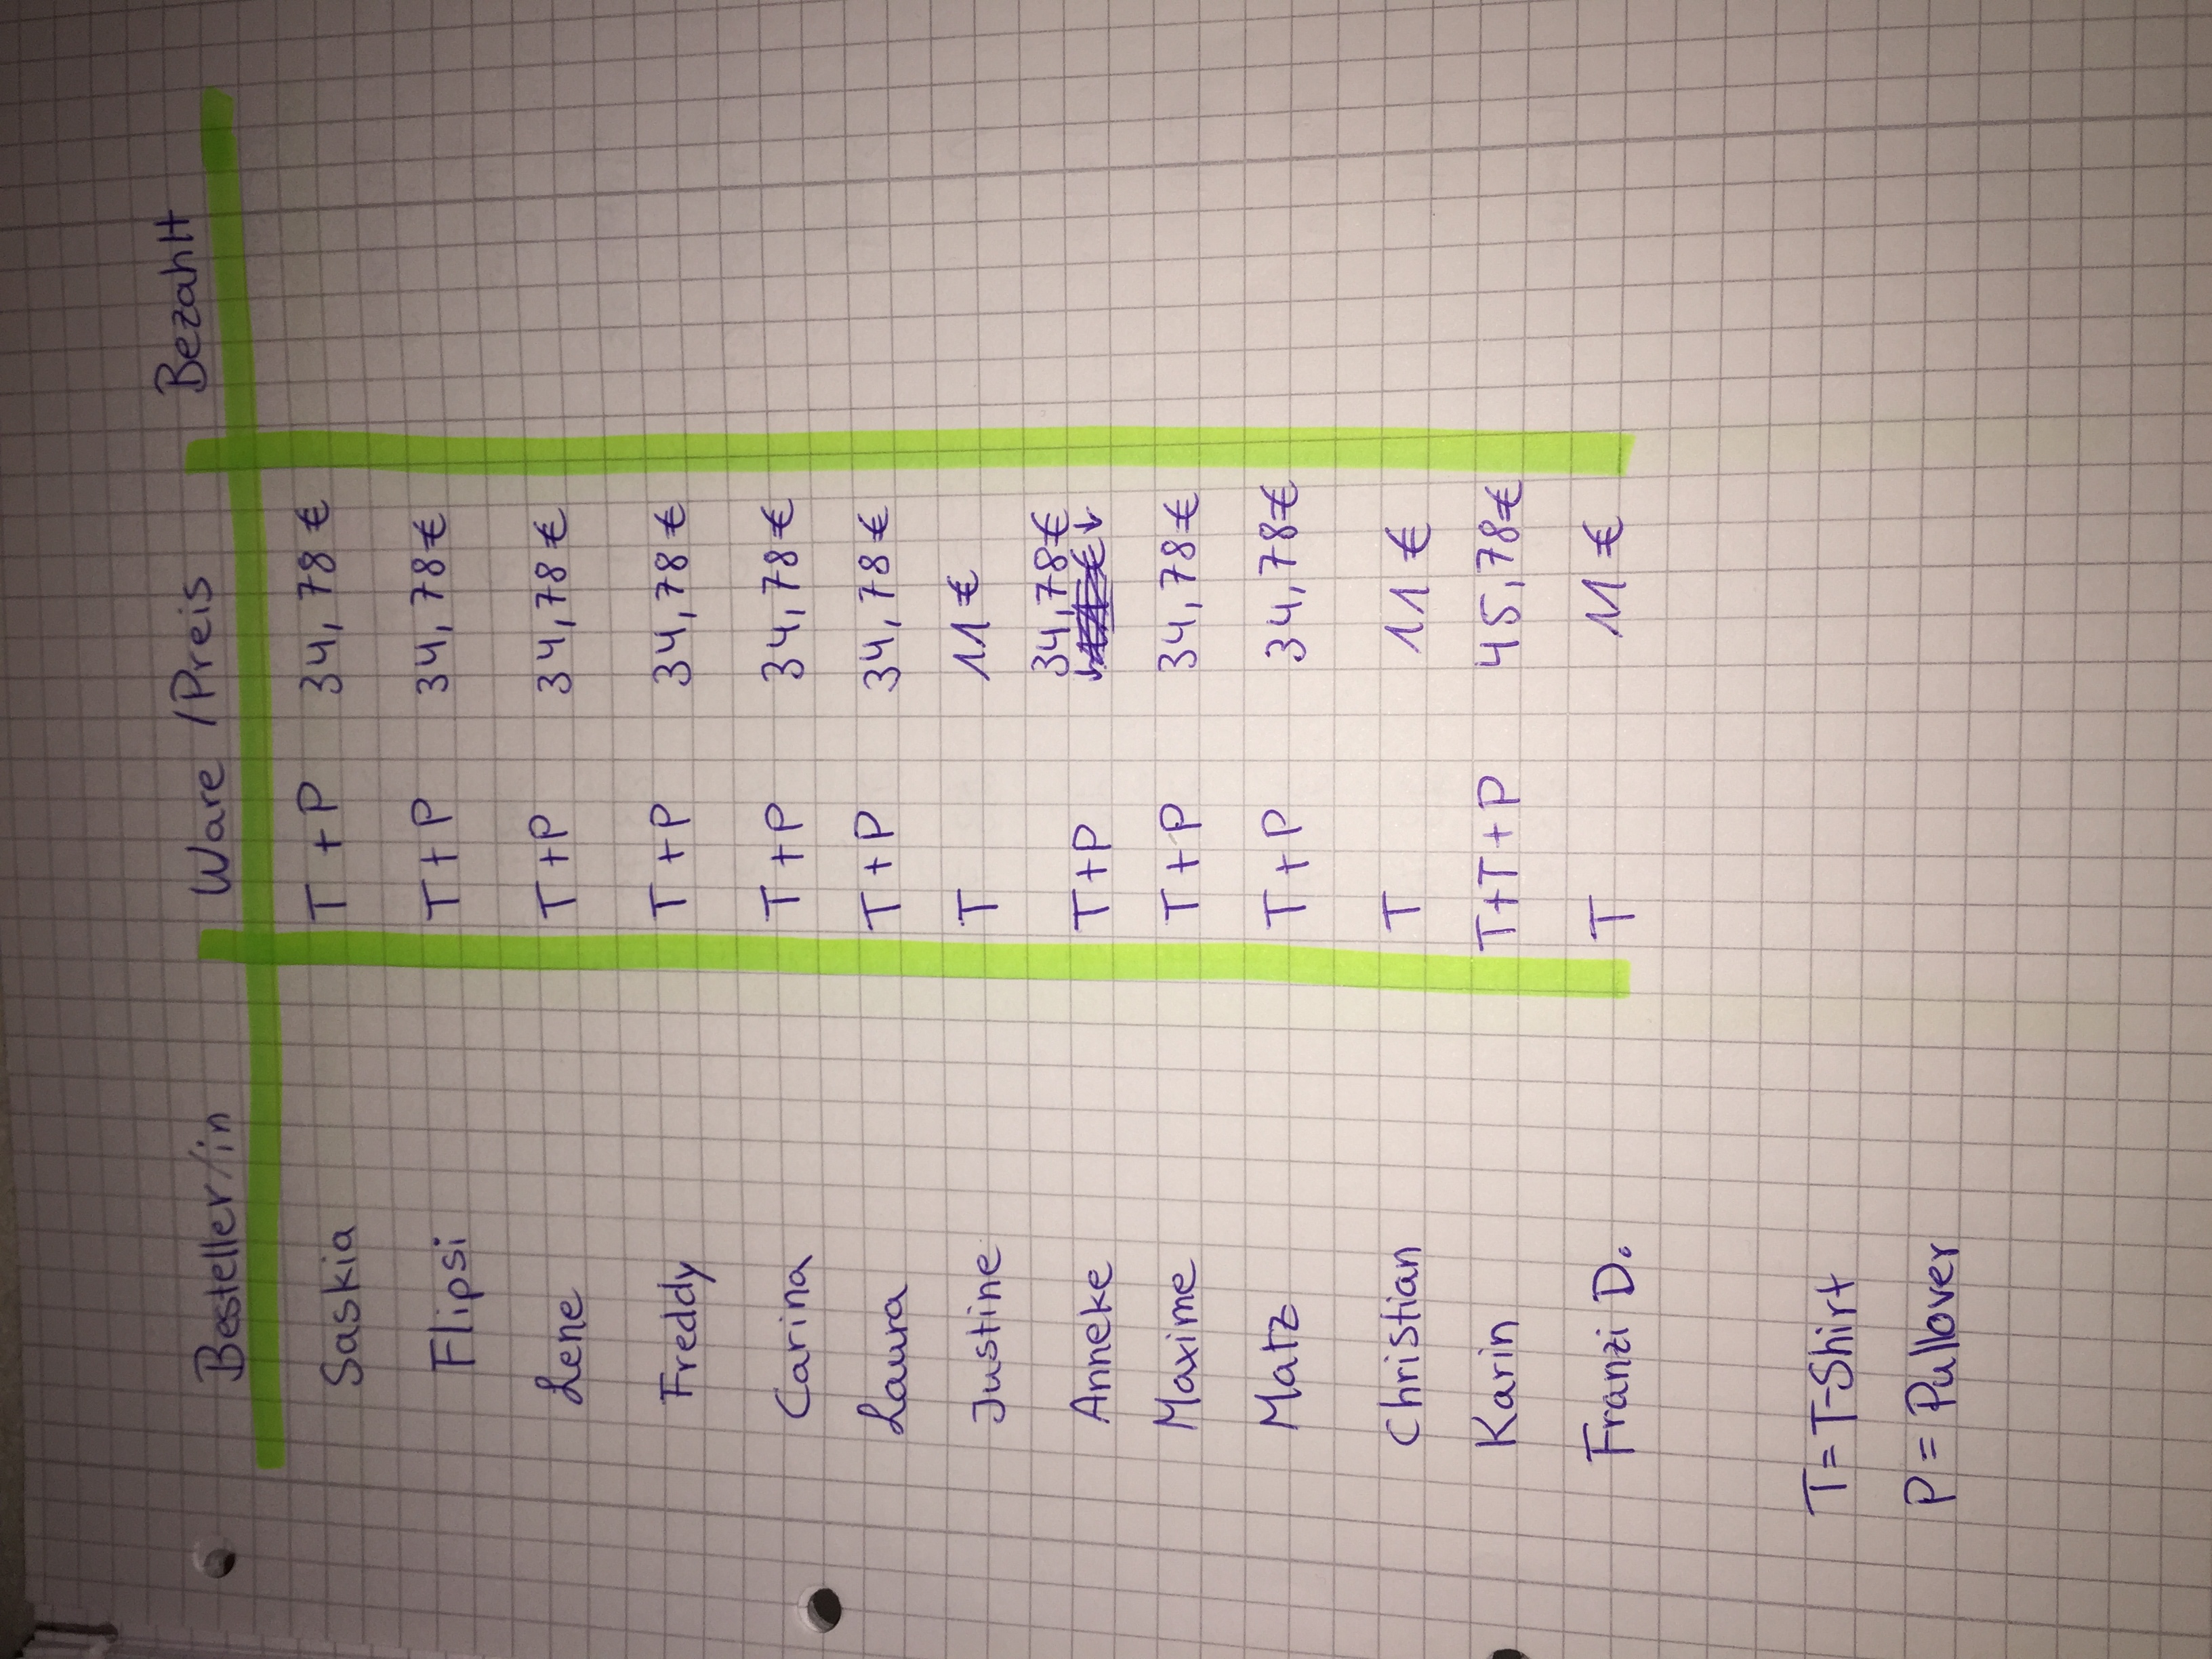 Besteller/in Ware /Preis Bezahlt
Saskia T + P 34,78 €
Flipsi T + P 34,78 €
Lene T + P 34,78 €
Freddy T + P 34,78 €
Carina T + P 34,78 €
Laura T + P 34,78 €
Justine T 11 €
Anneke T + P 34,78 €
Maxime T + P 34,78 €
Matz T + P 34,78 €
Christian T 11 €
Karin T + T + P 45,78 €
Franzi D. T 11 €
T = T-Shirt
P = Pullover